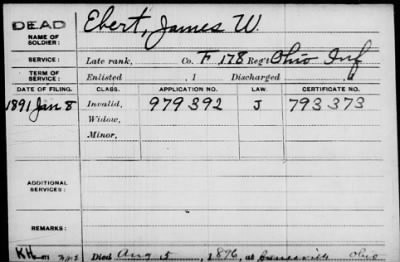 DEAD
NAME OF SOLDIER:
Ebert, James W.
SERVICE:
Late rank, Co. F, 178 Reg't Ohio Inf
TERM OF SERVICE:
Enlisted , 1 Discharged , 1
DATE OF FILING. CLASS. APPLICATION NO. LAW. CERTIFICATE NO.
1891 Jan 8 Invalid, 979392 J 793373
Widow,
Minor,
ADDITIONAL SERVICES:
REMARKS:
Died Aug 5, 1896, at Ohio